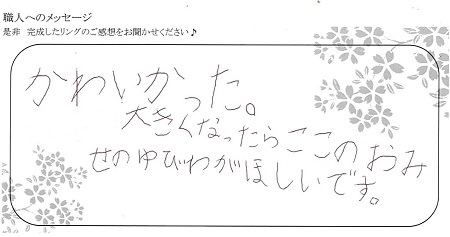 職人へのメッセージ
是非 完成したリングのご感想をお聞かせください♪
かわいかった。
大きくなったらここのおみ
せのゆびわがほしいです。